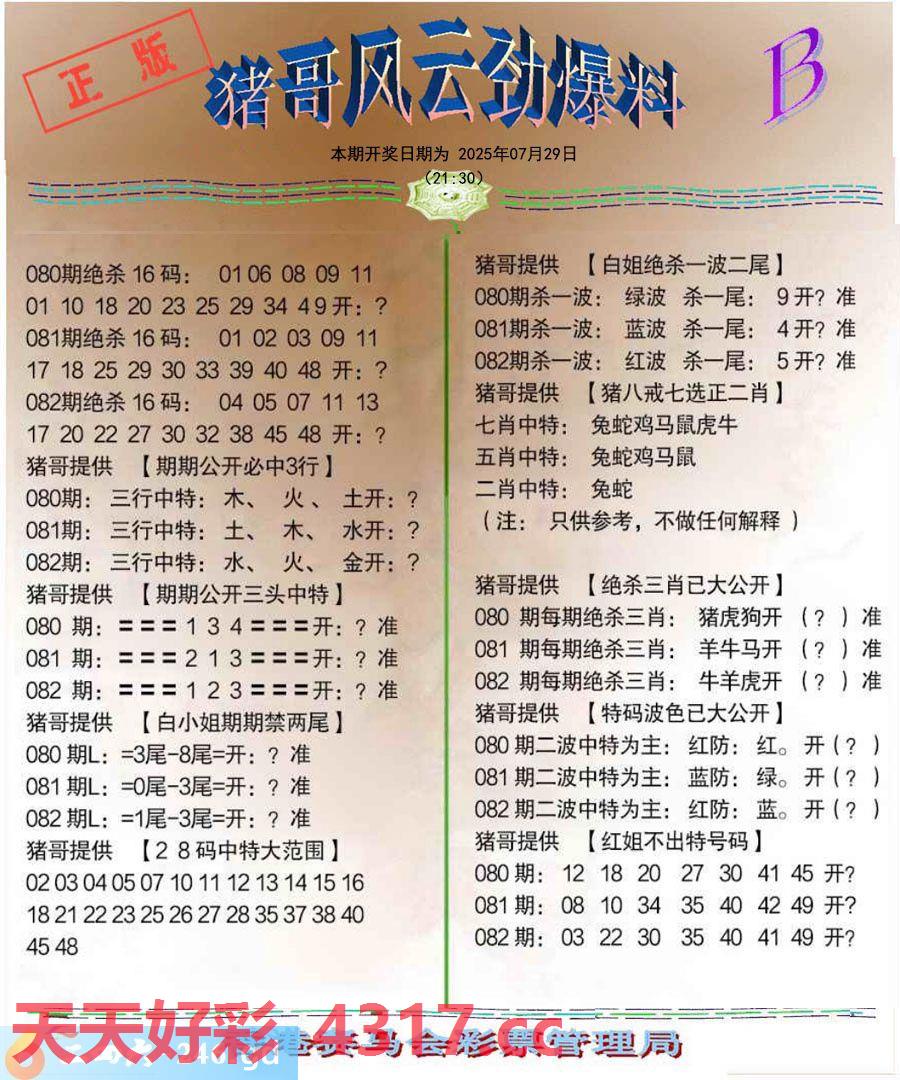 正版
猪哥风云劲爆料
B
本期开奖日期为 2025年07月29日
（21:30）
080期绝杀16码： 01 06 08 09 11
01 10 18 20 23 25 29 34 49开：?
081期绝杀16码： 01 02 03 09 11
17 18 25 29 30 33 39 40 48 开：?
082期绝杀16码： 04 05 07 11 13
17 20 22 27 30 32 38 45 48 开：?
猪哥提供 【期期公开必中3行】
080期： 三行中特： 木、 火、 土开：?
081期： 三行中特： 土、 木、 水开：?
082期： 三行中特： 水、 火、 金开：?
猪哥提供 【期期公开三头中特】
080 期：===1 3 4===开：? 准
081 期：===2 1 3===开：? 准
082 期：===1 2 3===开：? 准
猪哥提供 【白小姐期期禁两尾】
080期L：=3尾-8尾=开：? 准
081期L：=0尾-3尾=开：? 准
082期L：=1尾-3尾=开：? 准
猪哥提供 【28码中特大范围】
02 03 04 05 07 10 11 12 13 14 15 16
18 21 22 23 25 26 27 28 35 37 38 40
45 48
猪哥提供 【白姐绝杀一波二尾】
080期杀一波： 绿波 杀一尾： 9开? 准
081期杀一波： 蓝波 杀一尾： 4开? 准
082期杀一波： 红波 杀一尾： 5开? 准
猪哥提供 【猪八戒七选正二肖】
七肖中特： 兔蛇鸡马鼠虎牛
五肖中特： 兔蛇鸡马鼠
二肖中特： 兔蛇
（注： 只供参考，不做任何解释 ）
猪哥提供 【绝杀三肖已大公开】
080 期每期绝杀三肖： 猪虎狗开 （? ）准
081 期每期绝杀三肖： 羊牛马开 （? ）准
082 期每期绝杀三肖： 牛羊虎开 （? ）准
猪哥提供 【特码波色已大公开】
080期二波中特为主：红防：红。开(? )
081期二波中特为主：蓝防：绿。开(? )
082期二波中特为主：红防：蓝。开(? )
猪哥提供 【红姐不出特号码】
080期： 12 18 20 27 30 41 45 开?
081期： 08 10 34 35 40 42 49 开?
082期： 03 22 30 35 40 41 49 开?
天天好彩 4317.cc
港赛马会彩票管理局